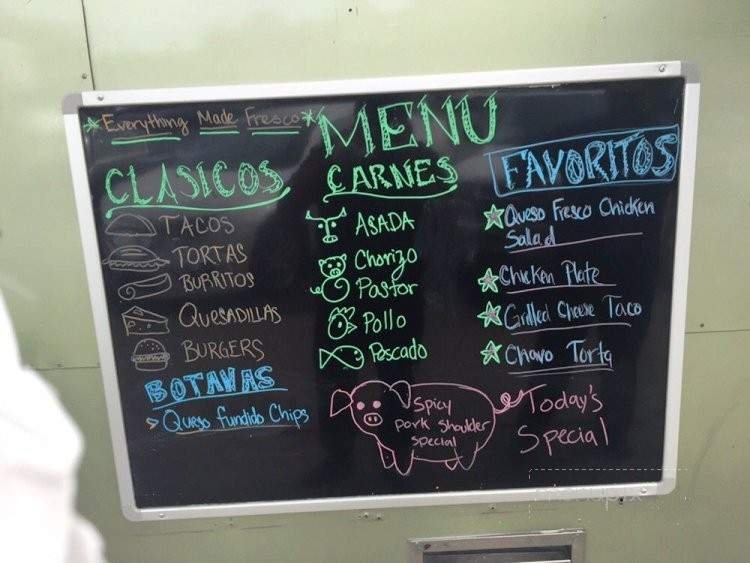 *Everything Made Fresco*
MENU
CLASICOS
TACOS
TORTAS
BURRITOS
QUESADILLAS
BURGERS
BOTANAS
> Queso fundido Chips
CARNES
ASADA
Chorizo
Pastor
Pollo
Pescado
FAVORITOS
Queso Fresco Chicken
Salad
Chicken Plate
Grilled Cheese Taco
Chavo Torta
Spicy
pork shoulder
special
Today's
Special